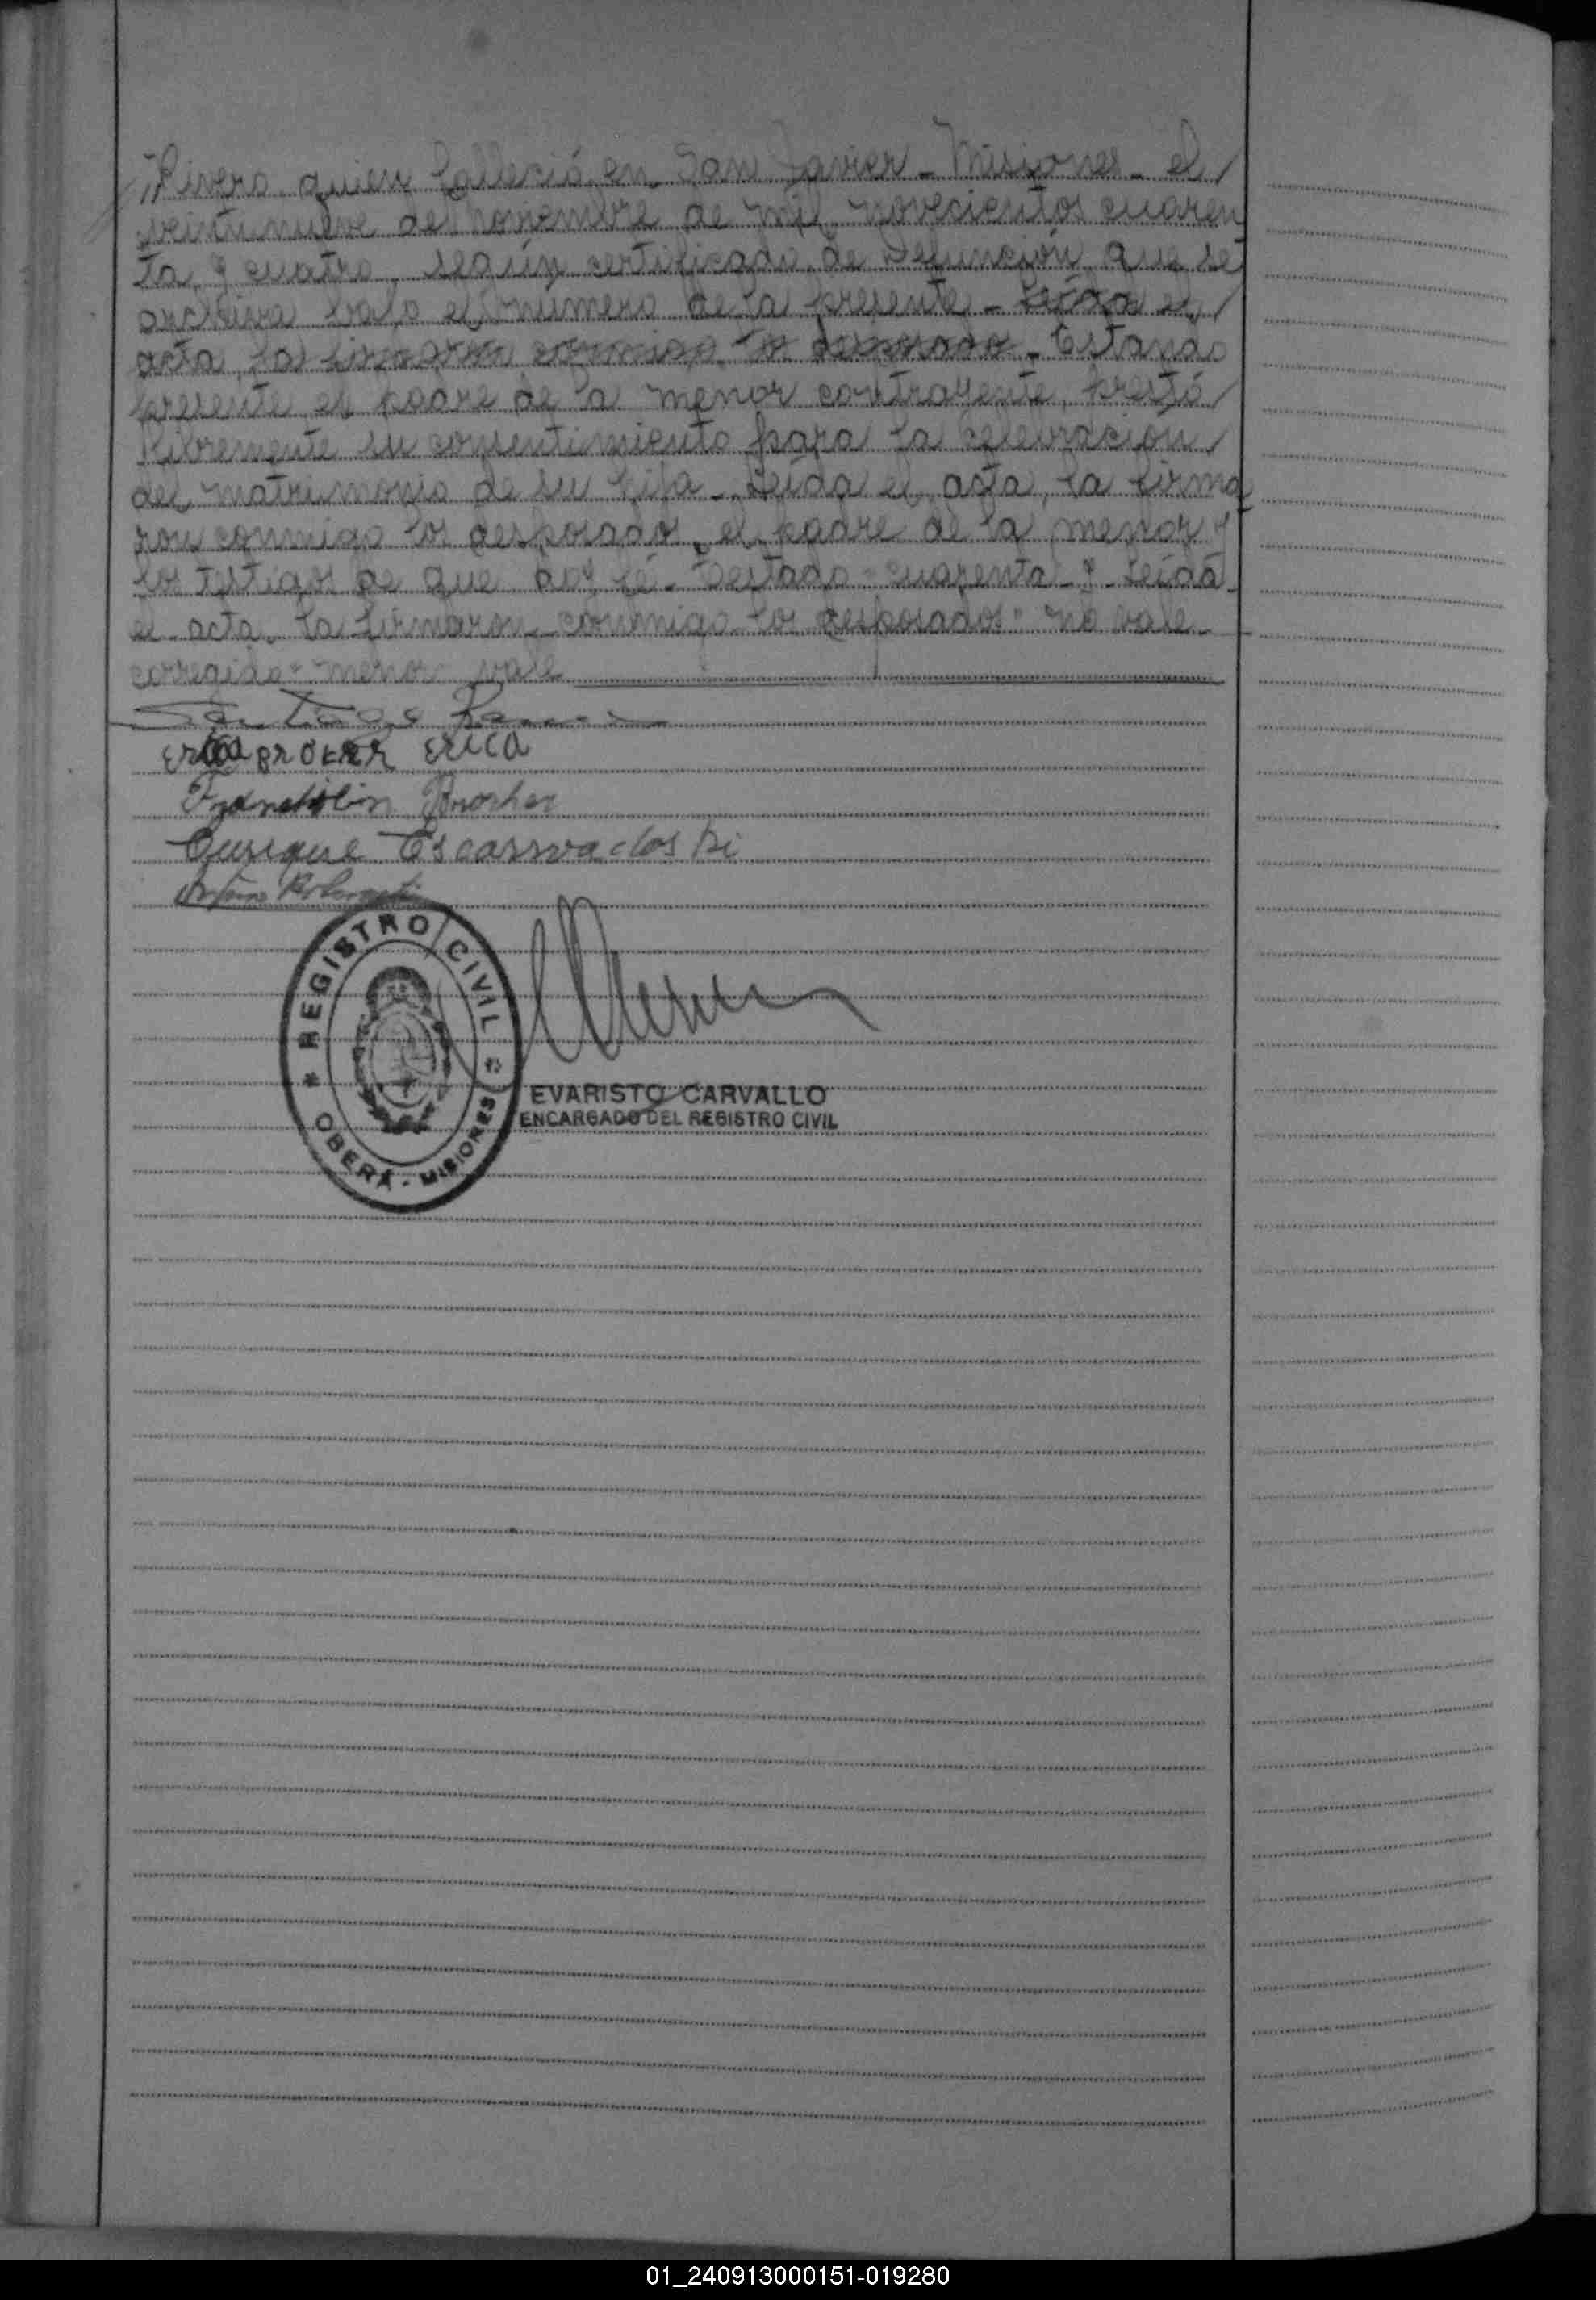 //Rivero quien falleció en San Javier - Misiones - el/
veintinueve de noviembre de mil novecientos cuaren
ta y cuatro, según certificado de Defunción que se
archiva bajo el número de la presente - Leída el/
acta, la firmaron conmigo los desposados - Estando
presente el padre de la menor contrayente, prestó/
libremente su consentimiento para la celebración/
del matrimonio de su hija - Leída el acta, la firma
ron conmigo los desposados, el padre de la menor y
los testigos de que doy fé - Testado = cuarenta - y - Leída
el acta, la firmaron conmigo los desposados = no vale -
corregido = menor = vale
Santiago
Erica BROKER Erica
Enrique
Arturo
REGISTRO CIVIL
OBERÁ - MISIONES
EVARISTO CARVALLO
ENCARGADO DEL REGISTRO CIVIL
01_240913000151-019280